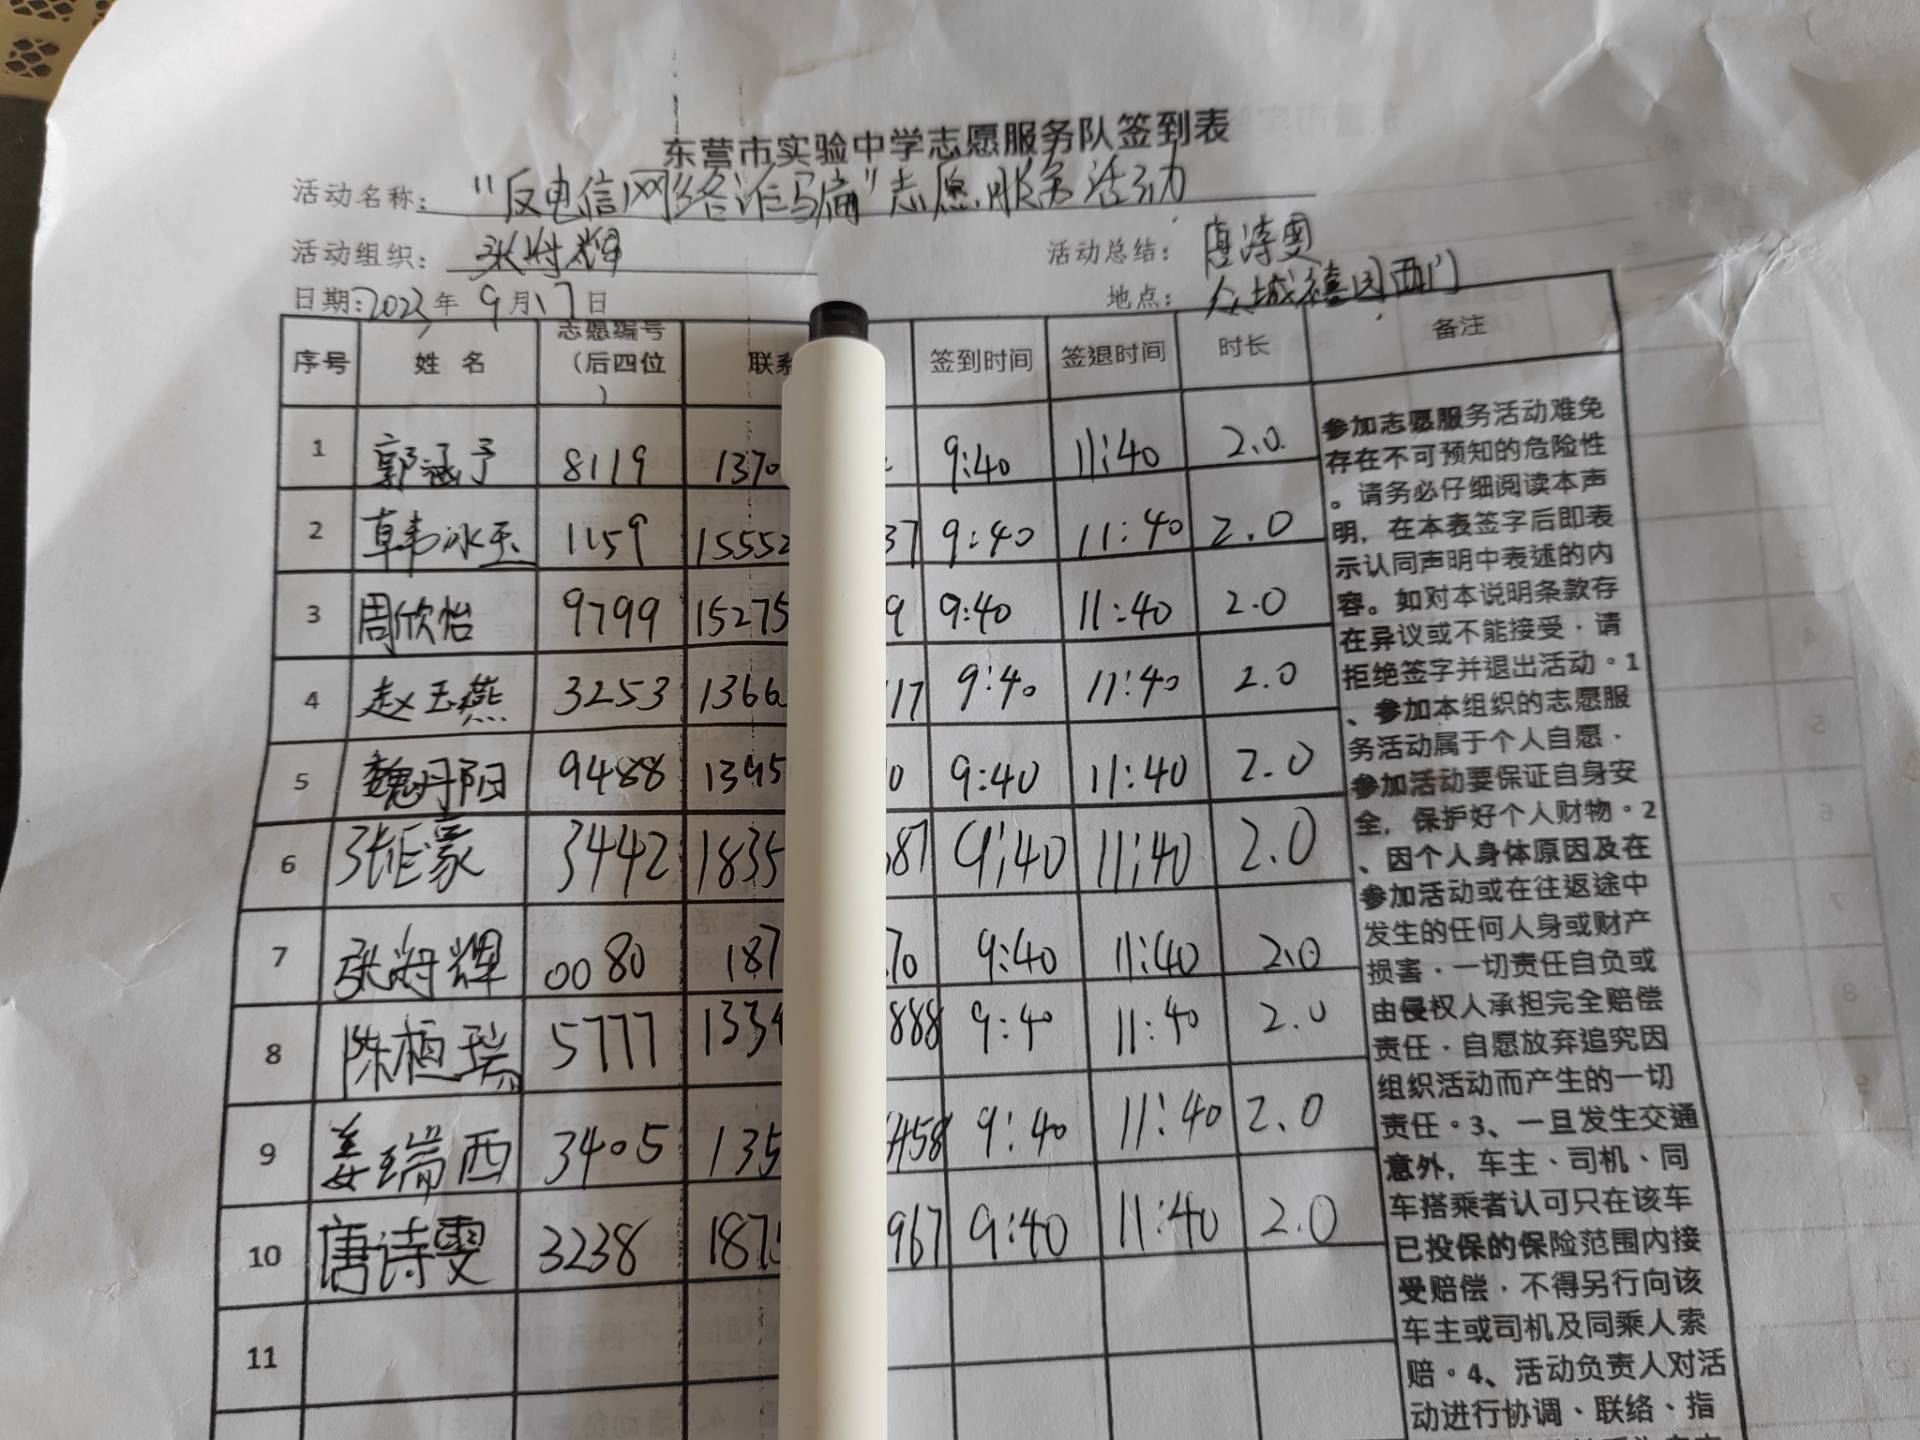 东营市实验中学志愿服务队签到表
活动名称: "反电信网络诈骗"志愿服务活动
活动组织: 张将辉 活动总结: 唐诗雯
日期:2023年9月17日 地点: 众城禧园西门
序号 姓名 志愿编号(后四位) 联系 签到时间 签退时间 时长 备注
1 郭涵予 8119 1370 9:40 11:40 2.0
2 韦冰玉 1159 15552 37 9:40 11:40 2.0
3 周欣怡 9799 15275 9 9:40 11:40 2.0
4 赵玉燕 3253 1366 17 9:40 11:40 2.0
5 魏丹阳 9488 1395 0 9:40 11:40 2.0
6 3442 1835 687 9:40 11:40 2.0
7 张将辉 0080 187 70 9:40 11:40 2.0
8 陈桓瑞 5777 1334 888 9:40 11:40 2.0
9 姜瑞西 3405 135 458 9:40 11:40 2.0
10 唐诗雯 3238 187 967 9:40 11:40 2.0
11
参加志愿服务活动难免
存在不可预知的危险性
。请务必仔细阅读本声
明，在本表签字后即表
示认同声明中表述的内
容。如对本说明条款存
在异议或不能接受，请
拒绝签字并退出活动。1
、参加本组织的志愿服
务活动属于个人自愿，
参加活动要保证自身安
全，保护好个人财物。2
、因个人身体原因及在
参加活动或在往返途中
发生的任何人身或财产
损害，一切责任自负或
由侵权人承担完全赔偿
责任，自愿放弃追究因
组织活动而产生的一切
责任。3、一旦发生交通
意外，车主、司机、同
车搭乘者认可只在该车
已投保的保险范围内接
受赔偿，不得另行向该
车主或司机及同乘人索
赔。4、活动负责人对活
动进行协调、联络、指